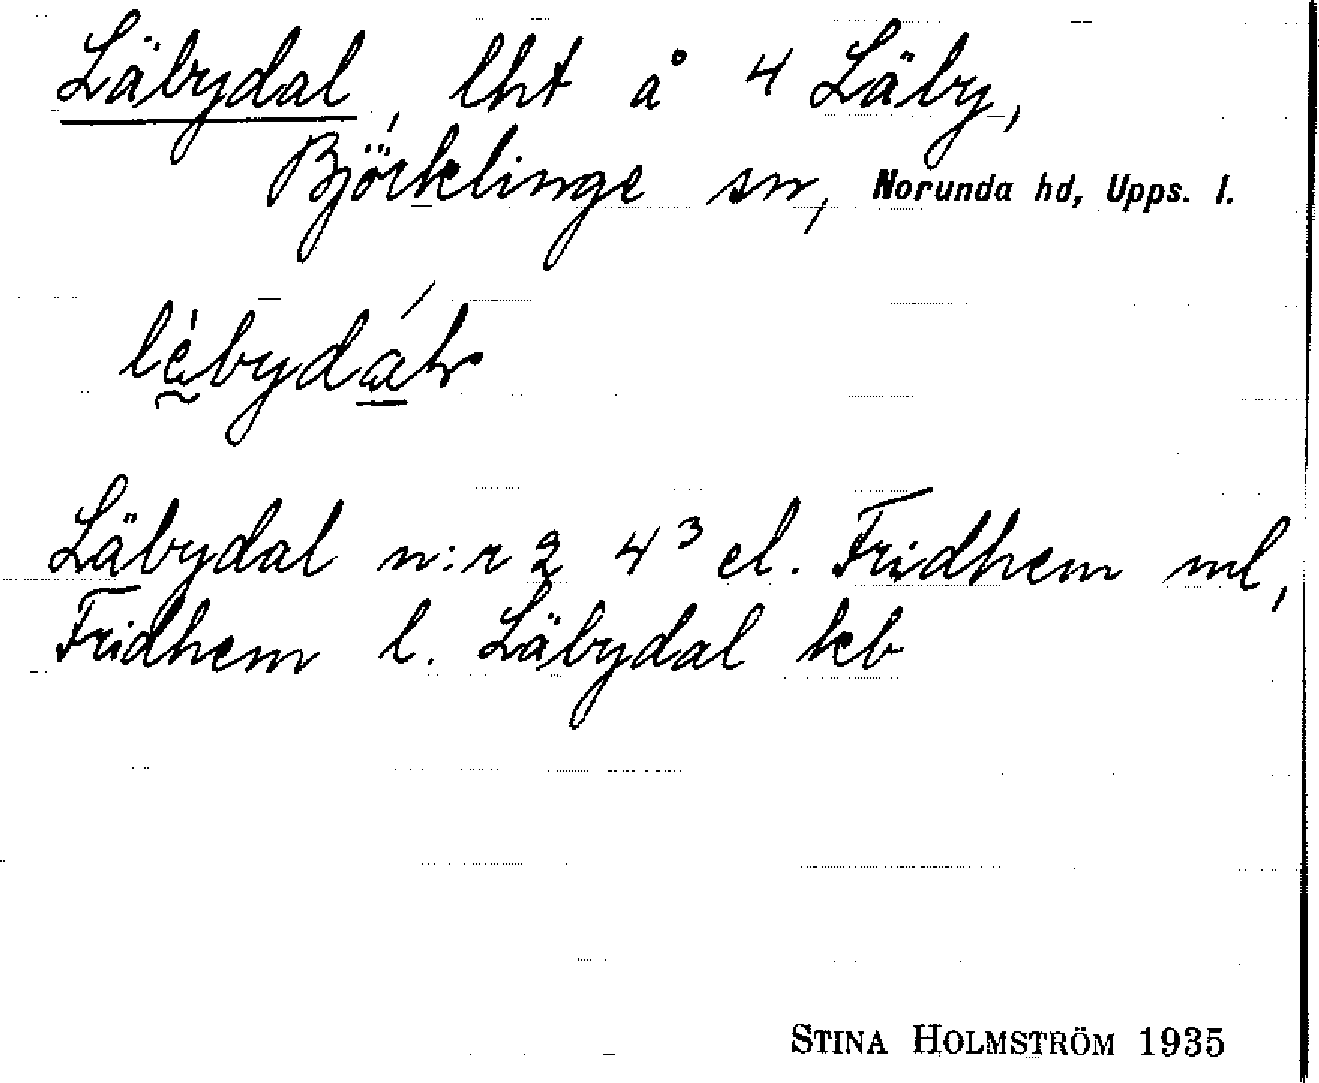 Läbydal, lht å 4 Läby,
Björklinge sn, Norunda hd, Upps. l.
Läbydal n:r 2 4³ el. Fridhem ml,
Fridhem l. Läbydal kb
STINA HOLMSTRÖM 1935